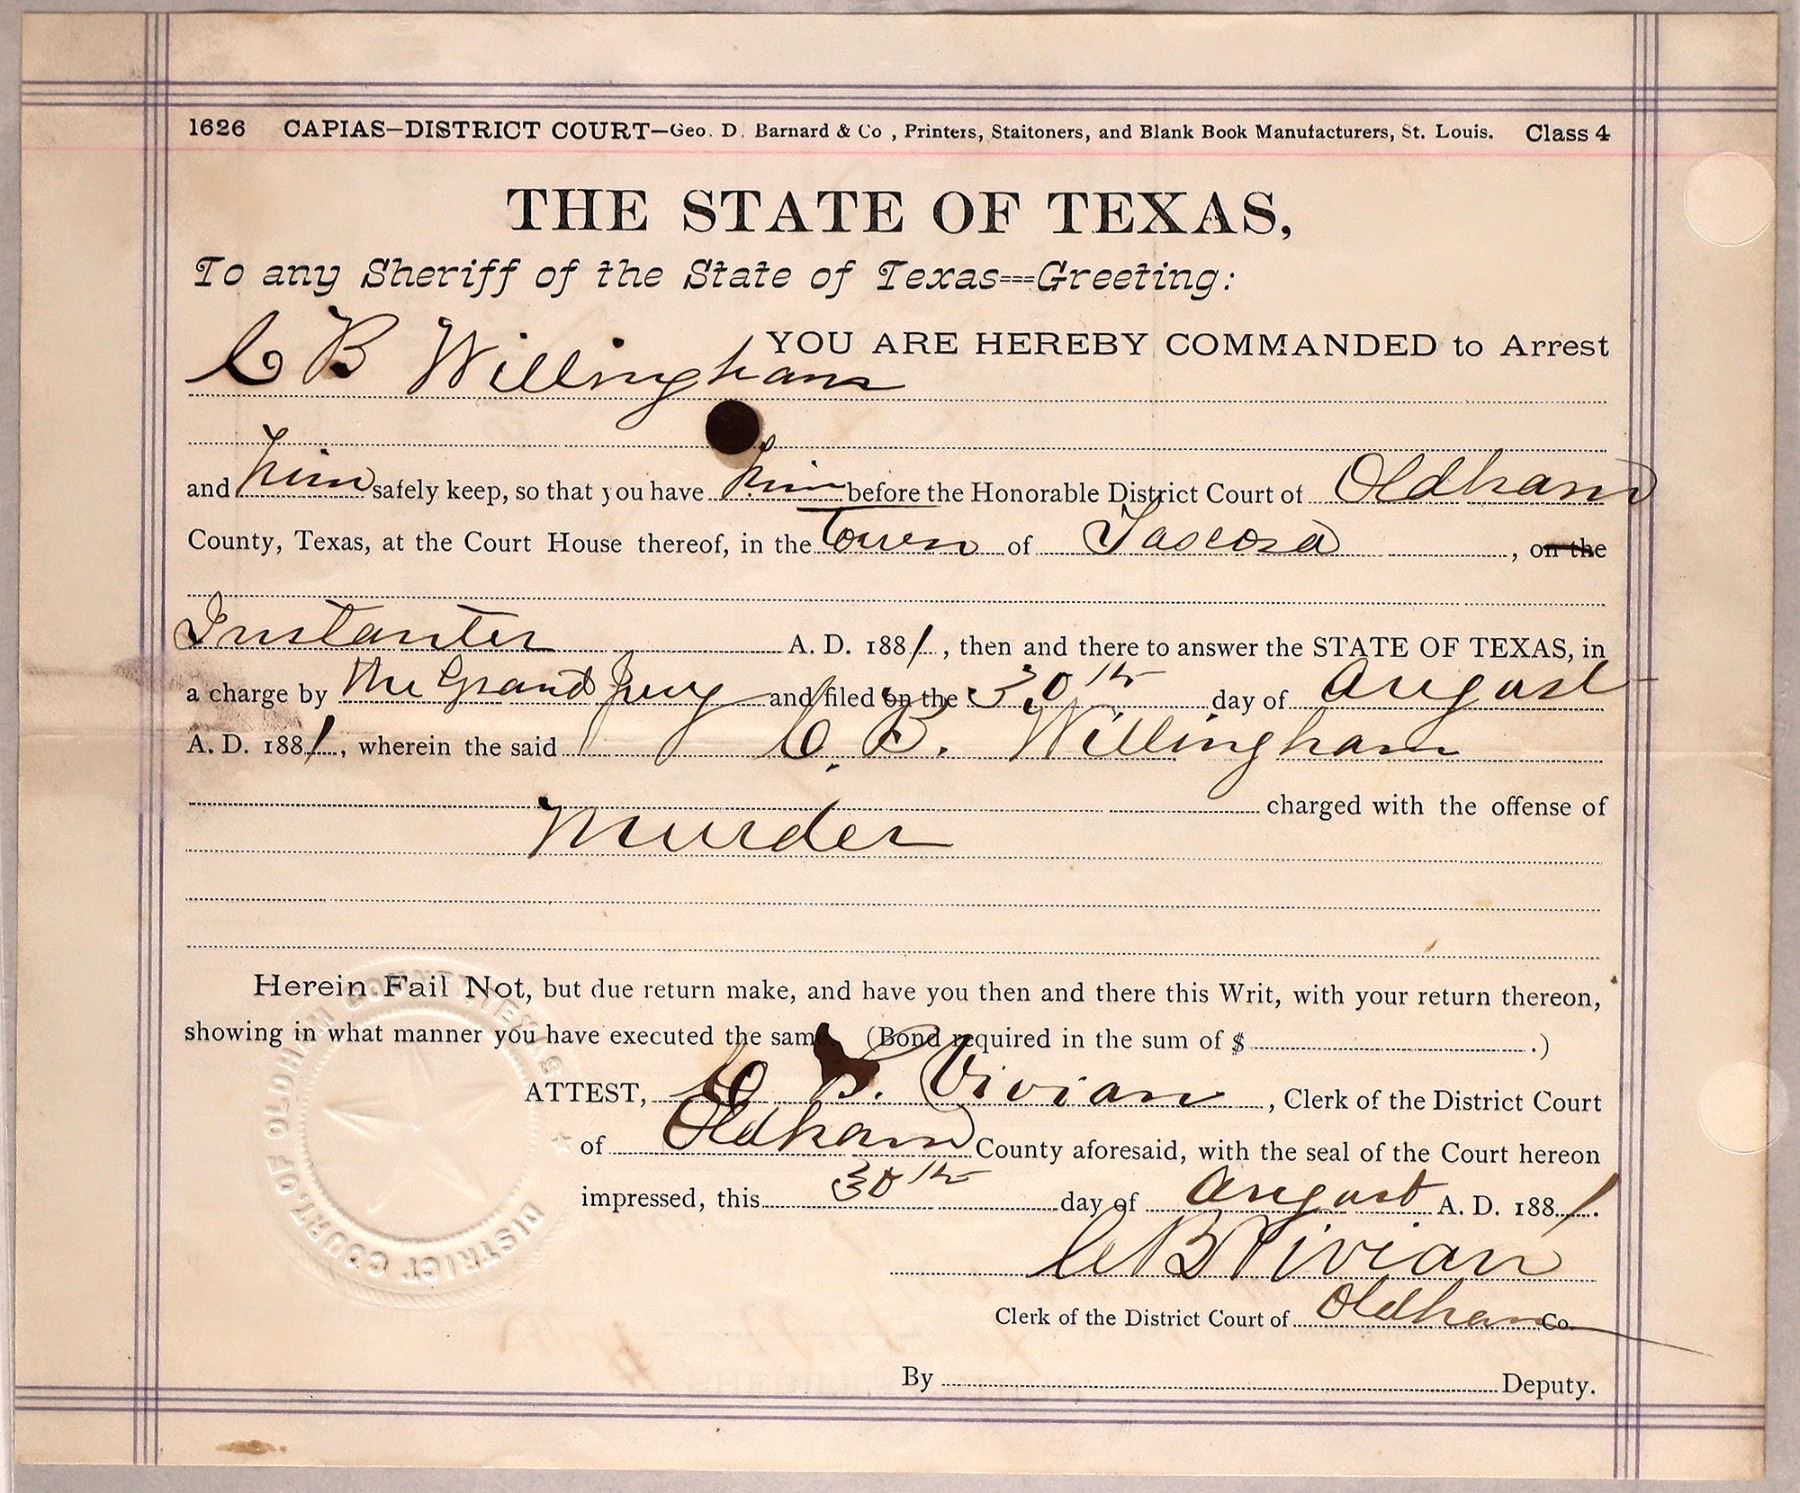 1626 CAPIAS–DISTRICT COURT–Geo. D. Barnard & Co., Printers, Staitoners, and Blank Book Manufacturers, St. Louis. Class 4
THE STATE OF TEXAS,
To any Sheriff of the State of Texas===Greeting:
YOU ARE HEREBY COMMANDED to Arrest
C B Willingham
and him safely keep, so that you have him before the Honorable District Court of Oldham
County, Texas, at the Court House thereof, in the Town of Tascosa, on the
Instanter A. D. 1881, then and there to answer the STATE OF TEXAS, in
a charge by the Grand Jury and filed on the 30th day of August
A. D. 1881, wherein the said C. B. Willingham
charged with the offense of
Murder
Herein Fail Not, but due return make, and have you then and there this Writ, with your return thereon,
showing in what manner you have executed the same (Bond required in the sum of $ .)
ATTEST, C B. Vivian, Clerk of the District Court
of Oldham County aforesaid, with the seal of the Court hereon
impressed, this 30th day of August A. D. 1881.
C B Vivian
Clerk of the District Court of Oldham Co.
By Deputy.
DISTRICT COURT OF OLDHAM COUNTY TEXAS